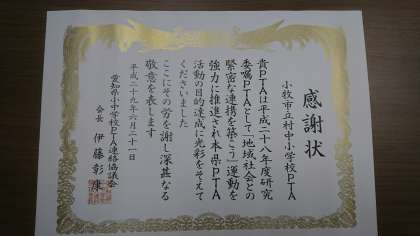 感謝状
小牧市立村中小学校PTA
貴PTAは平成二十八年度研究
委嘱PTAとして「地域社会との
緊密な連携を築こう」運動を
強力に推進され本県PTA
活動の目的達成に光彩をそえて
くださいました
ここにその労を謝し深甚なる
敬意を表します
平成二十九年六月二十一日
愛知県小中学校PTA連絡協議会
会長 伊藤彰康